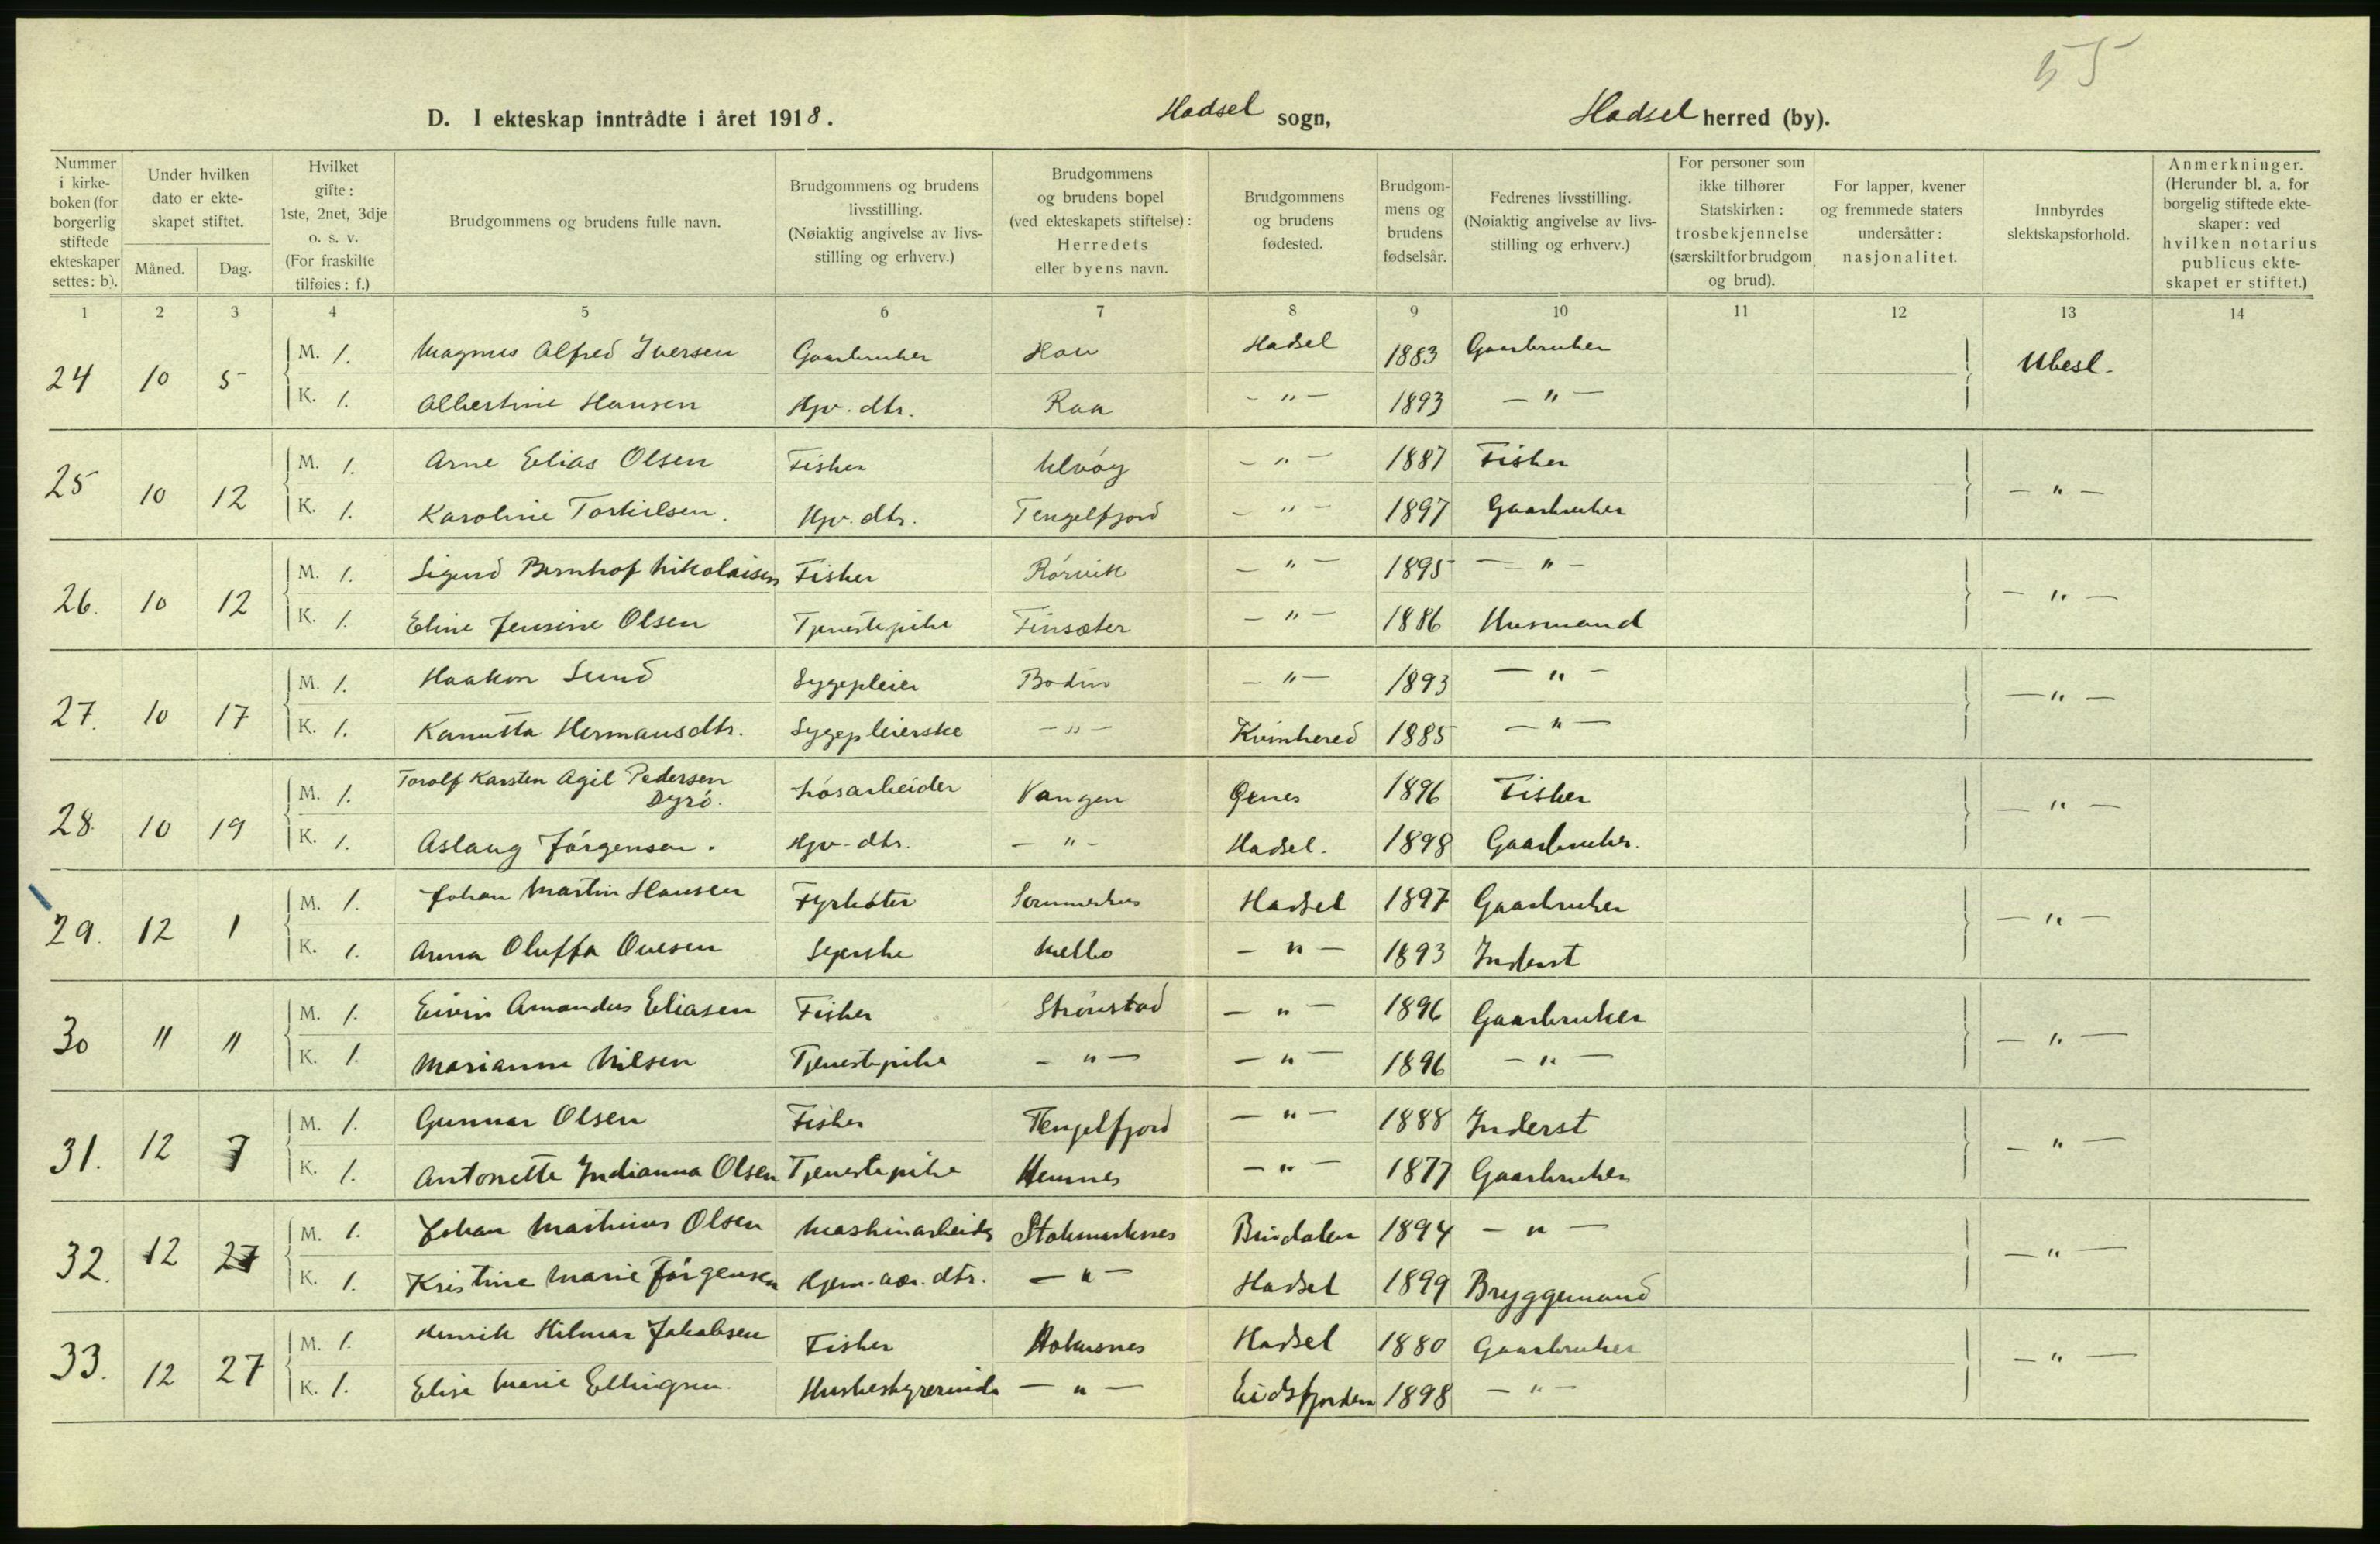 55
D. I ekteskap inntrådte i året 1918. Hadsel sogn, Hadsel herred (by).
Nummer i kirke-boken (for borgerlig stiftede ekteskaper settes: b).
Under hvilken dato er ekte-skapet stiftet.
Måned. Dag.
Hvilket gifte: 1ste, 2net, 3dje o. s. v. (For fraskilte tilføies: f.)
Brudgommens og brudens fulle navn.
Brudgommens og brudens livsstilling. (Nøiaktig angivelse av livs-stilling og erhverv.)
Brudgommens og brudens bopel (ved ekteskapets stiftelse): Herredets eller byens navn.
Brudgommens og brudens fødested.
Brudgom-mens og brudens fødselsår.
Fedrenes livsstilling. (Nøiaktig angivelse av livs-stilling og erhverv.)
For personer som ikke tilhører Statskirken: trosbekjennelse (særskilt for brudgom og brud).
For lapper, kvener og fremmede staters undersåtter: nasjonalitet.
Innbyrdes slektskapsforhold.
Anmerkninger. (Herunder bl. a. for borgelig stiftede ekte-skaper: ved hvilken notarius publicus ekte-skapet er stiftet.)
1 2 3 4 5 6 7 8 9 10 11 12 13 14
24 10 5 M. 1. Magnus Alfred Iversen Gaarbruker Hau Hadsel 1883 Gaarbruker Ubesl.
K. 1. Albertine Hansen Hjv. dtr. Raa - " - 1893 - " -
25 10 12 M. 1. Arne Elias Olsen Fisker Ulvöy - " - 1887 Fisker - " -
K. 1. Karoline Torkilsen. Hjv. dtr. Tengelfjord - " - 1897 Gaarbruker
26. 10 12 M. 1. Sigurd Bernhof Nikolaisen Fisker Rörvik - " - 1895 - " - - " -
K. 1. Eline Jensine Olsen Tjenestepike Finsæter - " - 1886 Husmand
27. 10 17 M. 1. Haakon Sund Sygepleier Bodin - " - 1893 - " - - " -
K. 1. Kanutta Hermansdtr. Sygepleierske - " - Kvinhered 1885 - " -
28. 10 19 M. 1. Torolf Karsten Agil Pedersen Dyrö. Lösarbeider Vangen 1896 Fisker - " -
K. 1. Aslaug Jörgensen. Hjv. dtr. - " - Hadsel. 1898 Gaarbruker.
29. 12 1 M. 1. Johan Martin Hansen Fyrböter Sommerhus Hadsel 1897 Gaarbruker - " -
K. 1. Anna Oluffa Ovesen Syerske Melbo - " - 1893 Inderst
30 " " M. 1. Eivin Amandus Eliasen Fisker Strönstad - " - 1896 Gaarbruker - " -
K. 1. Marianne Nilsen Tjenestepike - " - - " - 1896 - " -
31. 12 7 M. 1. Gunnar Olsen Fisker Tengelfjord - " - 1888 Inderst - " -
K. 1. Antonette Indianna Olsen Tjenestepike Hemnes - " - 1877 Gaarbruker
32. 12 27 M. 1. Johan Martinus Olsen Maskinarbeider Stokmarknes Bindalen 1894 - " - - " -
K. 1. Kristine Marie Jörgensen Hjem. vær. dtr. - " - Hadsel 1899 Bryggemand
33. 12 27 M. 1. Henrik Hilmar Jakobsen Fisker Hokusnes Hadsel 1880 Gaarbruker - " -
K. 1. Elise Marie Ellingsen. Husbestyrerinde - " - Eidsfjorden 1898 - " -